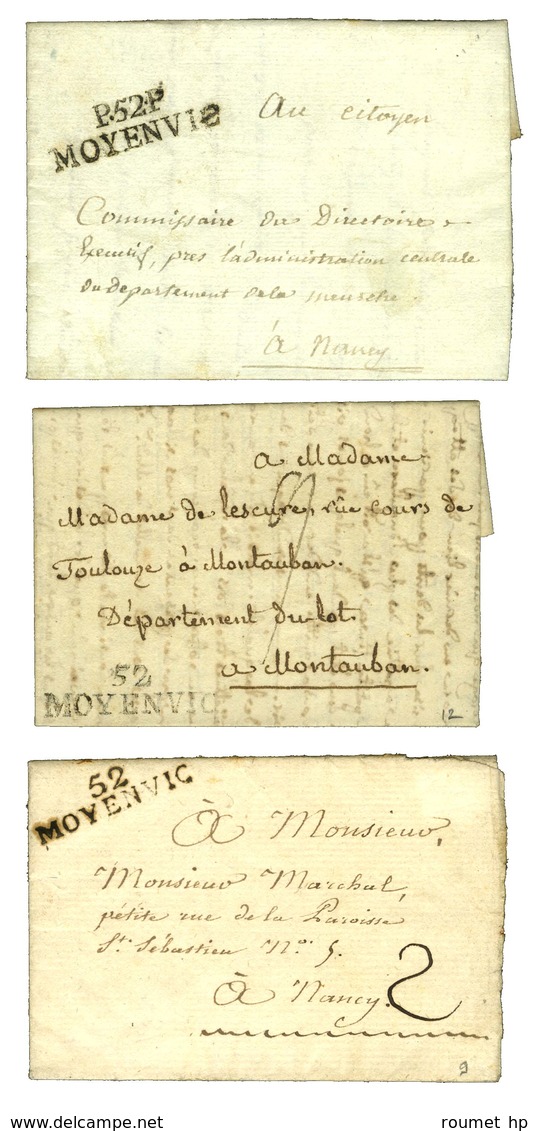 P.52.P
MOYENVIC
Au citoyen
Commissaire du Directoire
Executif, pres l'administration centrale
du departement de la meurthe.
à Nancy
a Madame
Madame de lescure, rûe cours de
Toulouze à Montauban.
Département du lot
a Montauban.
52
MOYENVIC
12
52
MOYENVIC
À Monsieur,
Monsieur Marchal,
pétite rue de la Paroisse
St. Sébastien No. 5.
À Nancy.
2
9
roumet hp